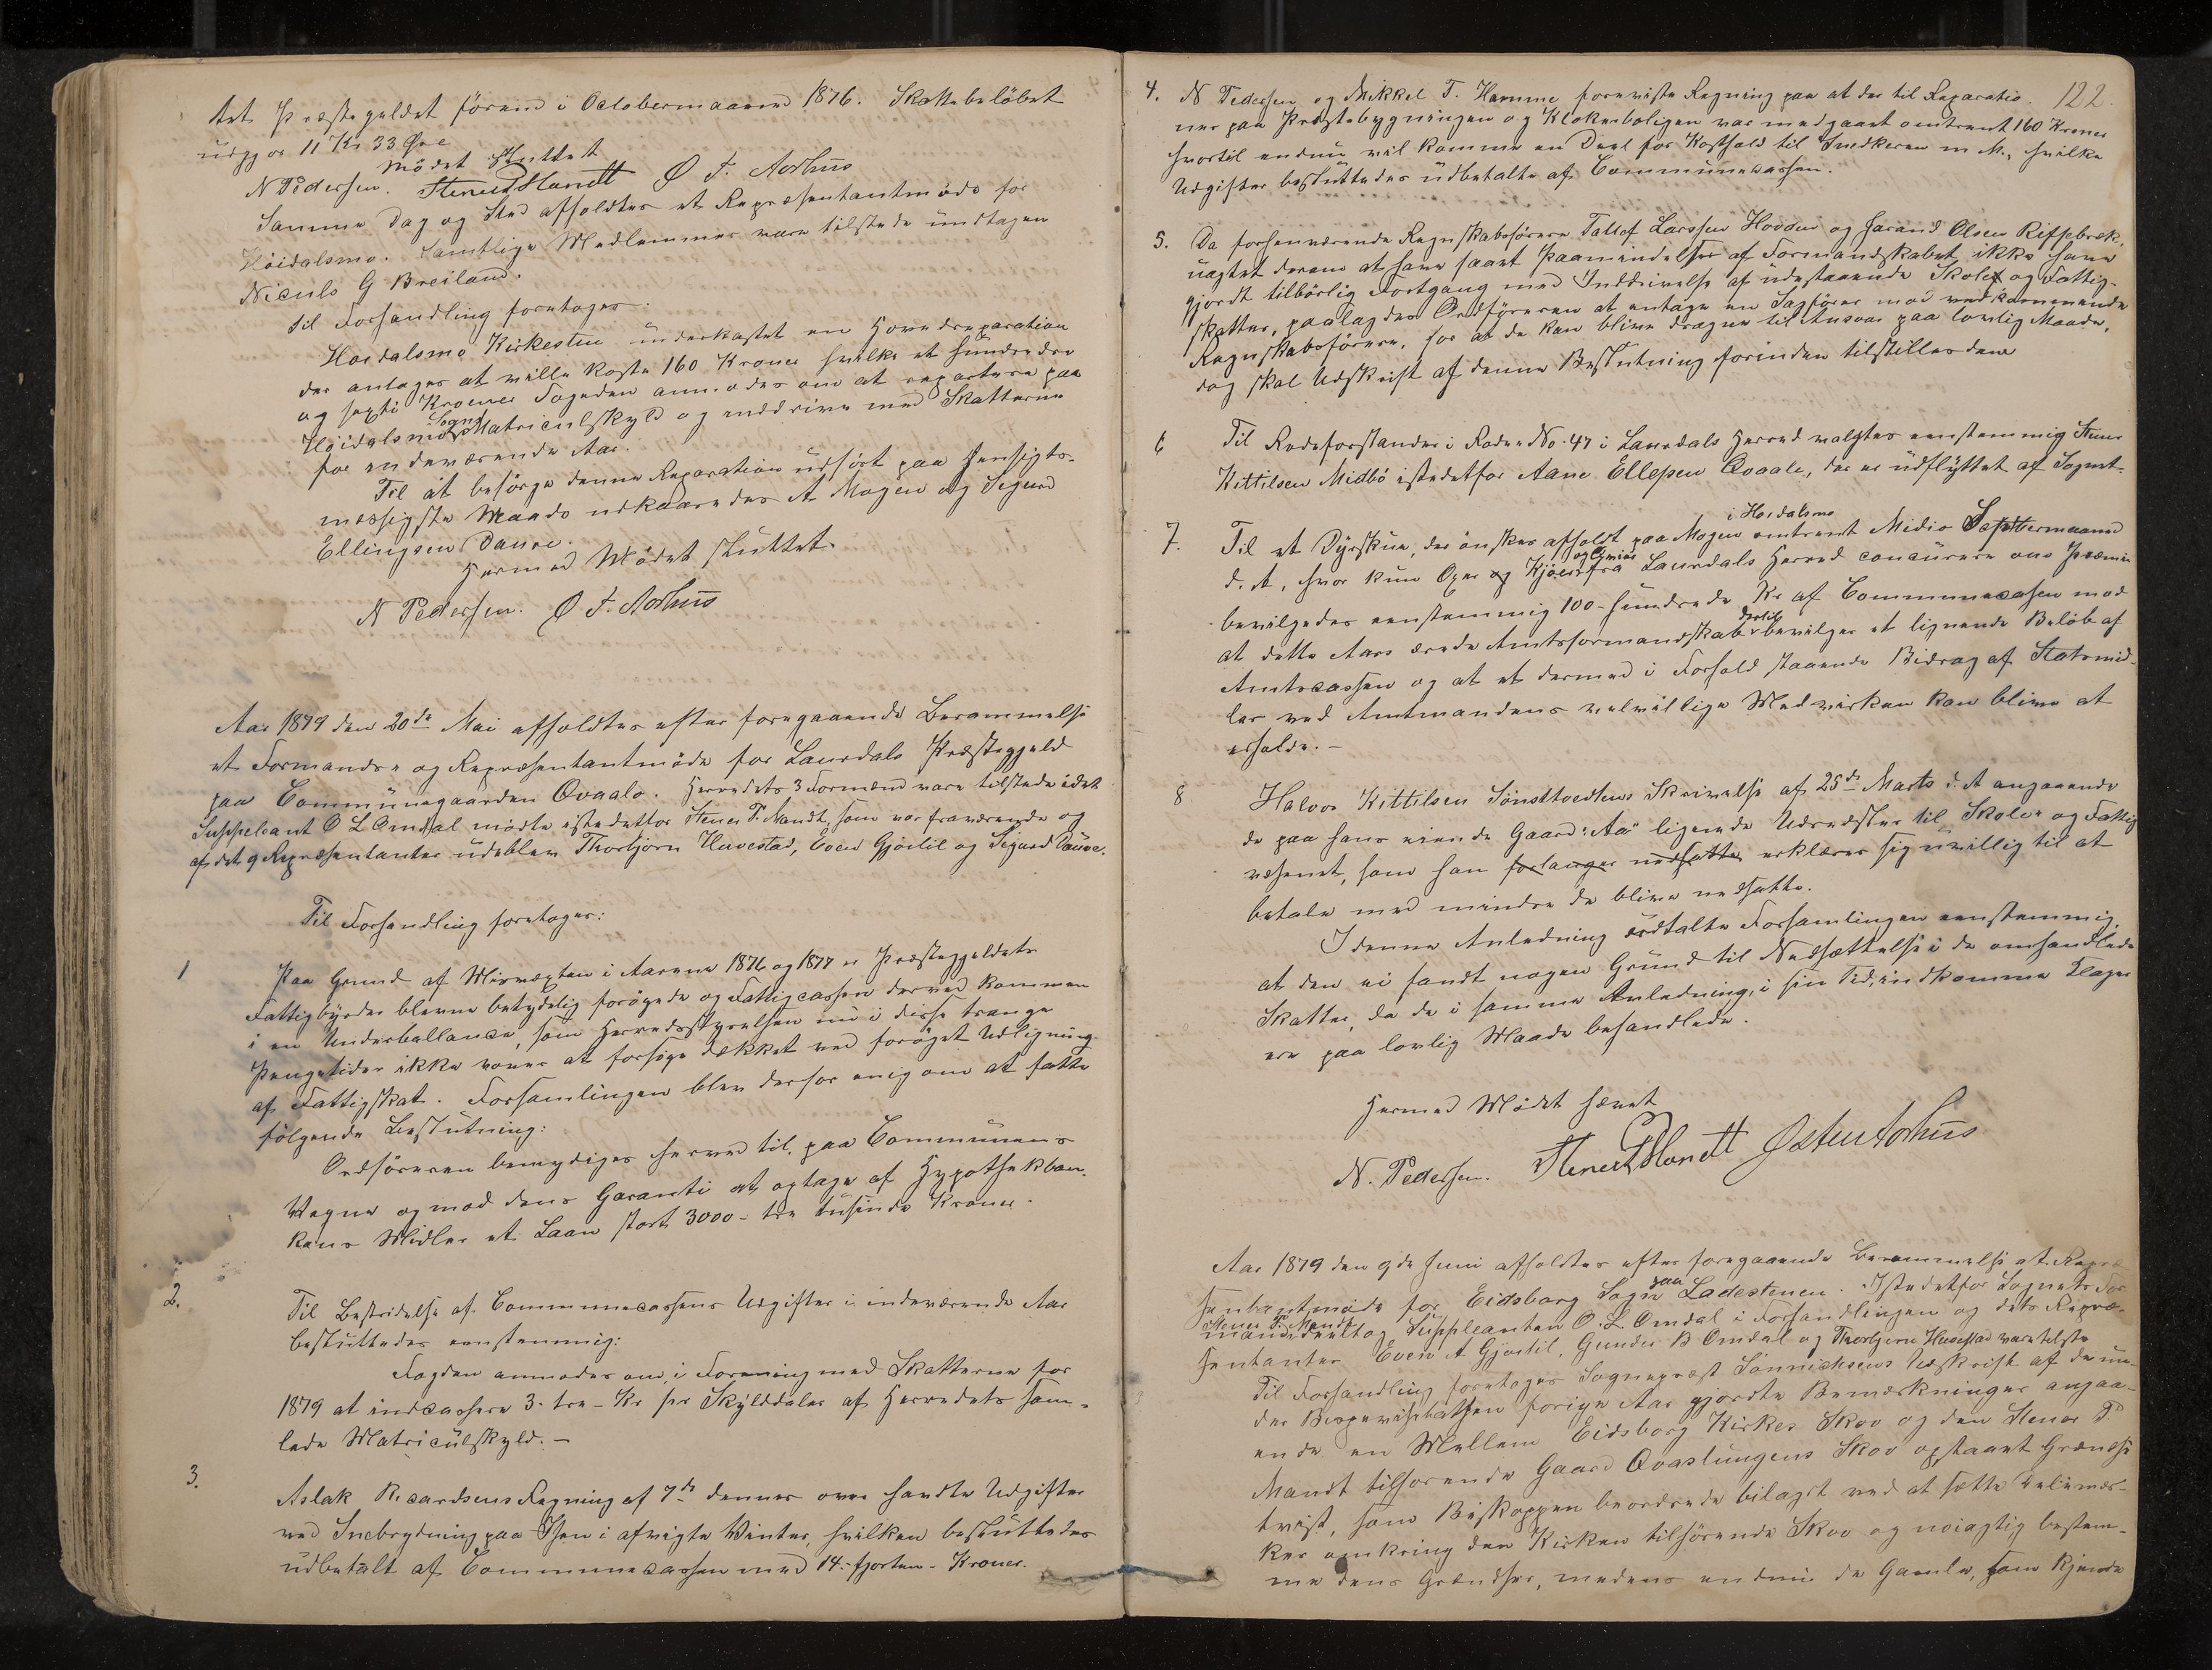 tet Præstegieldet förend i Octobermaaned 1876. Skattebelöbet
udgjør 11 Kr 33 Øre
Mödet sluttet
N Pedersen. Stener P Mandt Ø T. Aarhus
Samme Dag og Sted afholdtes et Repræsentantmøde for
Höidalsmo. Samtlige Medlemmer vare tilstede undtagen
Niculs G Breiland.
Til Forhandling foretoges.
Hoidalsmo Kirkestue underkastet en Hovedreparation
der antages at ville koste 160 Kroner hvilke et hundrede
og sexti Kroner Fogeden anmodes om at repartere paa
Höidalsmo Sogns Matriculskyld og inddrive med Skatterne
for indeværende Aar.
Til at besörge denne Reparation udført paa hensigts-
mæssigste Maade udkaaredes A Mogen og Sigurd
Ellingsen Dauve.
Hermed Mödet sluttet.
N Pedersen. Ø T. Aarhus
Aar 1879 den 20de Mai afholdtes efter foregaaende Berammelse
et Formands- og Repræsentantmöde for Laurdals Præstegjeld
paa Communegaarden Qvaale. Herredets 3 Formænd vare tilstede idet
Suppleant O L Omdal mødte istedetfor Stener P. Mandt, som var fraværende og
af det 9 Repræsentanter udebleve Thorbjørn Huvestad, Even Gjöitil og Sigurd Dauve.
Til Forhandling foretoges:
1 Paa Grund af Misvæxten i Aarene 1876 og 1877 er Præstegjeldets
Fattigbyrder blevne betydelig forögede og Fattigcassen derved kommen
i en Underballance, som Herredsstyrelsen nu i disse trange
Pengetider ikke vover at forsöge dækket ved foröget Udligning
af Fattigskat. Forsamlingen blev derfor enig om at fatte
fölgende Beslutning:
Ordföreren bemyndiges herved til, paa Communens
Vegne og mod dens Garanti at optage af Hypothekban-
kens Midler et Laan stort 3000 - tre tusinde Kroner.
2. Til Bestridelse af Communecassens Udgifter i indeværende Aar
besluttedes eenstemmig:
Fogden anmodes om, i Forening med Skatterne for
1879 at indcassere 3 - tre - Kr per Skylddaler af Herredets sam-
lede Matriculskyld. -
3. Aslak Ricardsens Regning af 7de dennes over havdte Udgifter
ved Snebrydning paa Isen i afvigte Vinter, hvilken besluttedes
udbetalt af Communecassen med 14 - fjorten - Kroner.
122.
4. N Pedersen og Mikkel T. Hamme foreviste Regning paa at der til Reparatio-
ner paa Præstebygningen og Klokkerboligen var medgaaet omtrent 160 Kroner
hvortil endnu vil komme en Deel for Kosthold til Snedkeren m M., hvilke
Udgifter besluttedes udbetalte af Communecassen.
5. Da forhenværende Regnskabsförere Tallef Larssen Hovden og Harand Olsen Riffebæk,
uagtet derom at have faaet Paamindelser af Formandskabet ikke have
gjordt tilbörlig Fortgang med Inddrivelse af udestaaende Skole og Fattig-
skatter, paalagdes Ordföreren at antage en Sagförer mod vedkommende
Regnskabsförere, for at de kan blive dragne til Ansvar paa lovlig Maade,
dog skal Udskrift af denne Beslutning forinden tilstilles dem
6 Til Rodeforstander i Rode No. 47 i Laurdals Herred valgtes eenstemmig Stener
Kittilsen Midbö istedetfor Aane Ellefsen Qvaale, der er udflyttet af Sognet.
7. Til et Dyrskue, der önskes afholdt paa Mogen i Hoidalsmo omtrent Midio Septbermaaned
d. A, hvor kun Oxer og Kjöer og Qvier fra Laurdals Herred concurere om Præmie
bevilgedes eenstemmig 100 - hundrede Kr af Communecassen mod
at dette Aars ærede Amtsformandskab dertil bevilger et lignende Belöb af
Amtscassen og at et dermed i Forhold staaende Bidrag af Statsmid-
ler ved Amtmandens velvillige Medvirken kan blive at
erholde. -
8 Halvor Kittilsen Sönsttvedtens Skrivelse af 25de Marts d. A angaaende
de paa hans eiende Gaard "Aa" lignede Udredsler til Skole- og Fattig
væsenet, som han forlanger nedsatte erklærer sig uvillig til at
betale med mindre de blive nedsatte.
I denne Anledning udtalte Forsamlingen eenstemmig,
at den ei fandt nogen Grund til Nedsættelse i de omhandlede
Skatter, da de i samme Anledning, i sin Tid, indkomme Klager
ere paa lovlig Maade behandlede.
Hermed Mödet hævet
N. Pedersen. Stener P Mandt Østen Aarhus
Aar 1879 den 9de Juni afholdtes efter foregaaende Berammelse et Repræ-
sentantmøde for Eidsborg Sogn paa Ladestenen. Istedetfor Sognets For
mand Stener P. Mandt deeltog Suppleanten O. L. Omdal i Forhandlingen og dets Repræ-
sentanter Even A Gjøitil, Gunder B Omdal og Thorbjørn Huvestad vare tilste
Til Forhandling foretoges Sognepræst Sönnichsens Udskrift af de un-
der Bispevisitatsen forige Aar gjordte Bemærkninger angaa-
ende en Mellem Eidsborg Kirkes Skov og den Stener P.
Mandt tilhorende Gaard Qvaslungens Skov opstaaet Grændse
tvist, som Biskoppen beordrede bilagt ved at sætte Delemær-
ker omkring den Kirken tilhörende Skov og noiagtig bestem-
me dens Grændser, medens endnu de Gamle, som kjende